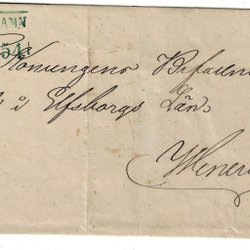 AMN
54
Konungens Befalln
i Elfsborgs Län,
Wener